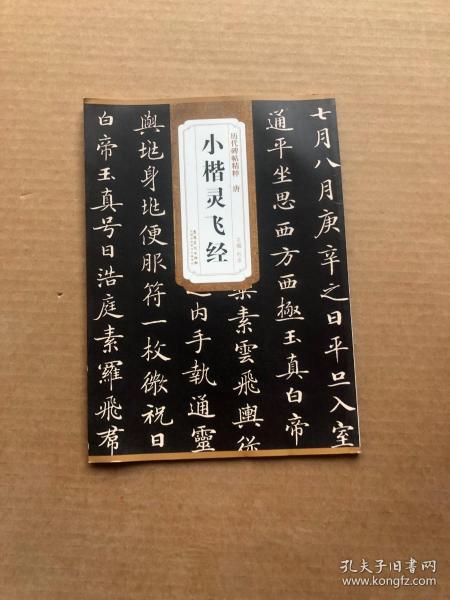 七月八月庚辛之日平旦入室
通平坐思西方西極玉真白帝
素雲飛輿從
之内手執通靈
與㘯身㘯便服符一枚微祝曰
白帝玉真号曰浩庭素羅飛君
历代碑帖精粹 唐
小楷灵飞经
孔夫子旧书网
www.kongfz.com